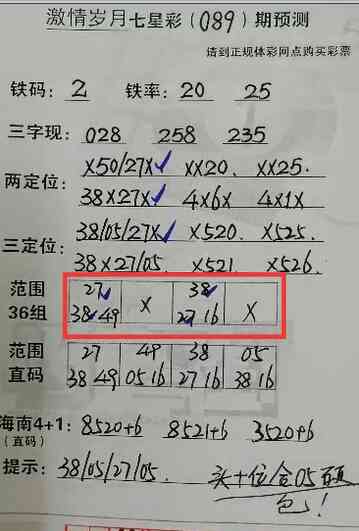 激情岁月七星彩(089)期预测
请到正规体彩网点购买彩票
铁码: 2 铁率: 20 25
三字现: 028 258 235
X50/27X✓ XX20. XX25.
两定位: 38X27X✓ 4X6X 4X1X
38/05/27X✓ X520. X525.
三定位: 38X27/05. X521. X526.
范围 27✓ X 38✓ X
36组 38✓49 27 16
范围 27 49 38 05
直码 38 49 05 16 27 16 38 16
海南4+1: 8520+6 8521+6 3520+6
(直码)
提示: 38/05/27/05. 头十位合05硬
包!